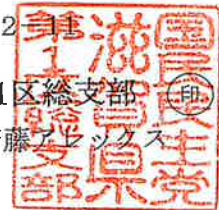 2-11
1区総支部 ㊞
藤アレックス
国民民主党
滋賀県
第1区総支部